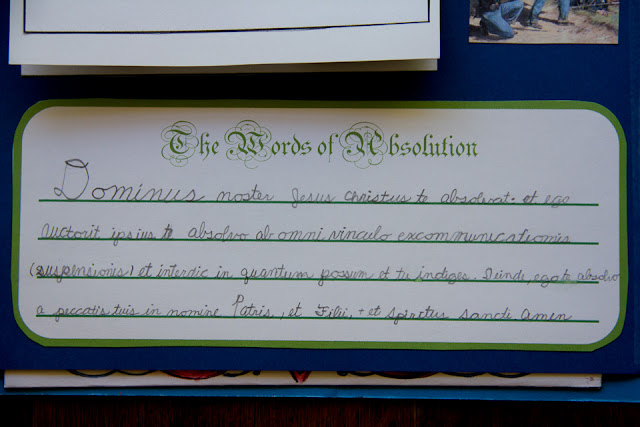 The Words of Absolution
Dominus noster Jesus Christus te absolvat. et ego
auctorit ipsius te absolvo ab omni vinculo excommunicationis
(suspensionis) et interdic in quantum possum et tu indiges. Deinde, ego te absolvo
a peccatis tuis in nomine Patris, et Filii, + et Spiritus Sancti Amen